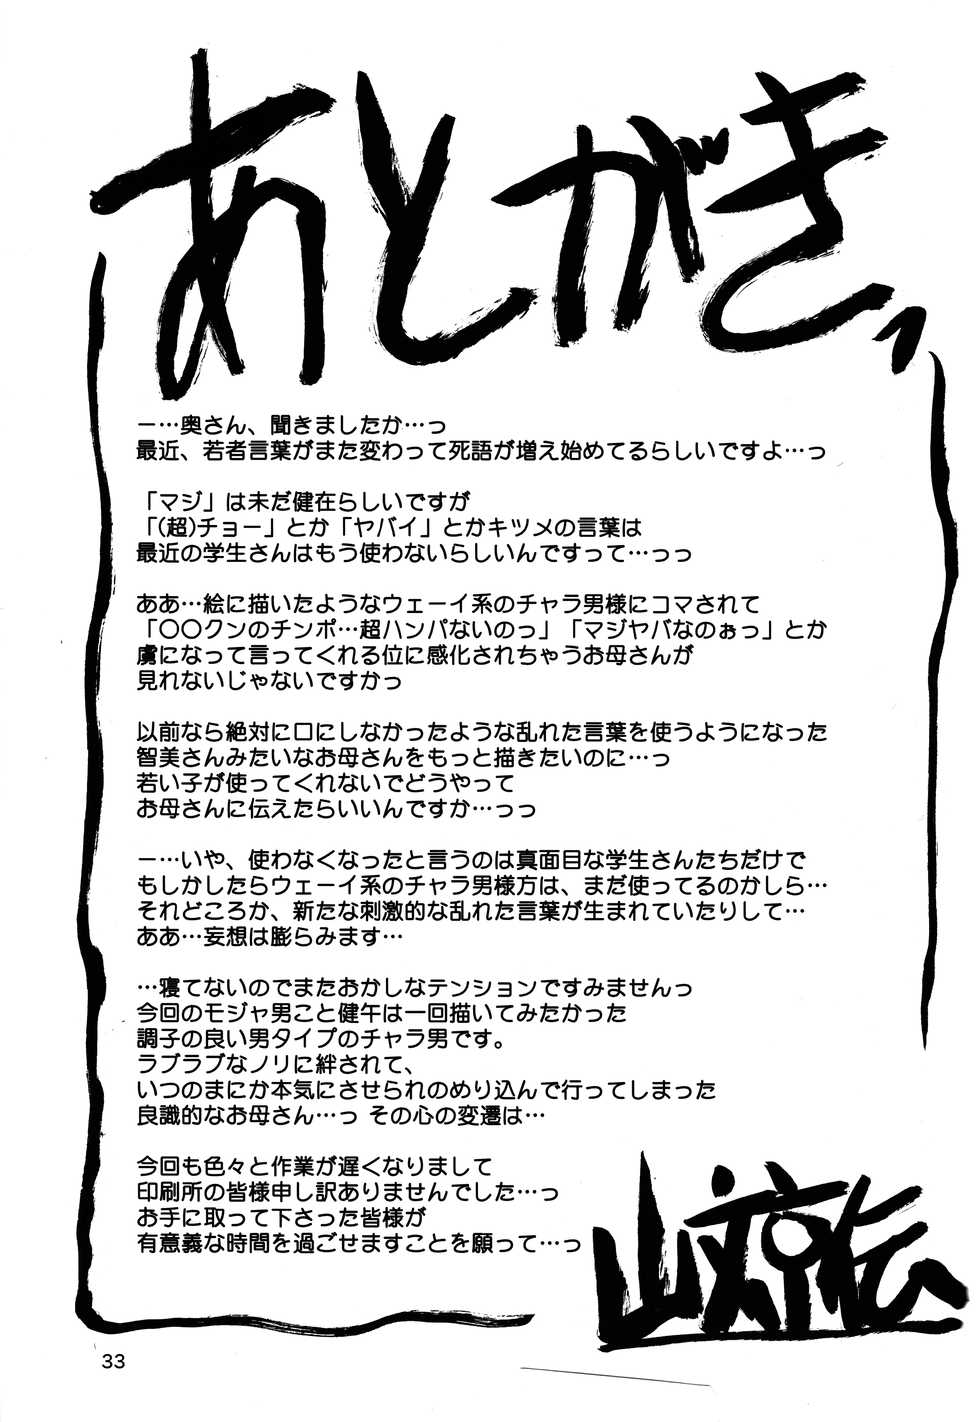 あとがき
ー…奥さん、聞きましたか…っ
最近、若者言葉がまた変わって死語が増え始めてるらしいですよ…っ
「マジ」は未だ健在らしいですが
「(超)チョー」とか「ヤバイ」とかキツメの言葉は
最近の学生さんはもう使わないらしいんですって…っっ
ああ…絵に描いたようなウェーイ系のチャラ男様にコマされて
「〇〇クンのチンポ…超ハンパないのっ」「マジヤバなのぉっ」とか
虜になって言ってくれる位に感化されちゃうお母さんが
見れないじゃないですかっ
以前なら絶対に口にしなかったような乱れた言葉を使うようになった
智美さんみたいなお母さんをもっと描きたいのに…っ
若い子が使ってくれないでどうやって
お母さんに伝えたらいいんですか…っっ
ー…いや、使わなくなったと言うのは真面目な学生さんたちだけで
もしかしたらウェーイ系のチャラ男様方は、まだ使ってるのかしら…
それどころか、新たな刺激的な乱れた言葉が生まれていたりして…
ああ…妄想は膨らみます…
…寝てないのでまたおかしなテンションですみませんっ
今回のモジャ男こと健午は一回描いてみたかった
調子の良い男タイプのチャラ男です。
ラブラブなノリに絆されて、
いつのまにか本気にさせられのめり込んで行ってしまった
良識的なお母さん…っ その心の変遷は…
今回も色々と作業が遅くなりまして
印刷所の皆様申し訳ありませんでした…っ
お手に取って下さった皆様が
有意義な時間を過ごせますことを願って…っ
山文京伝
33